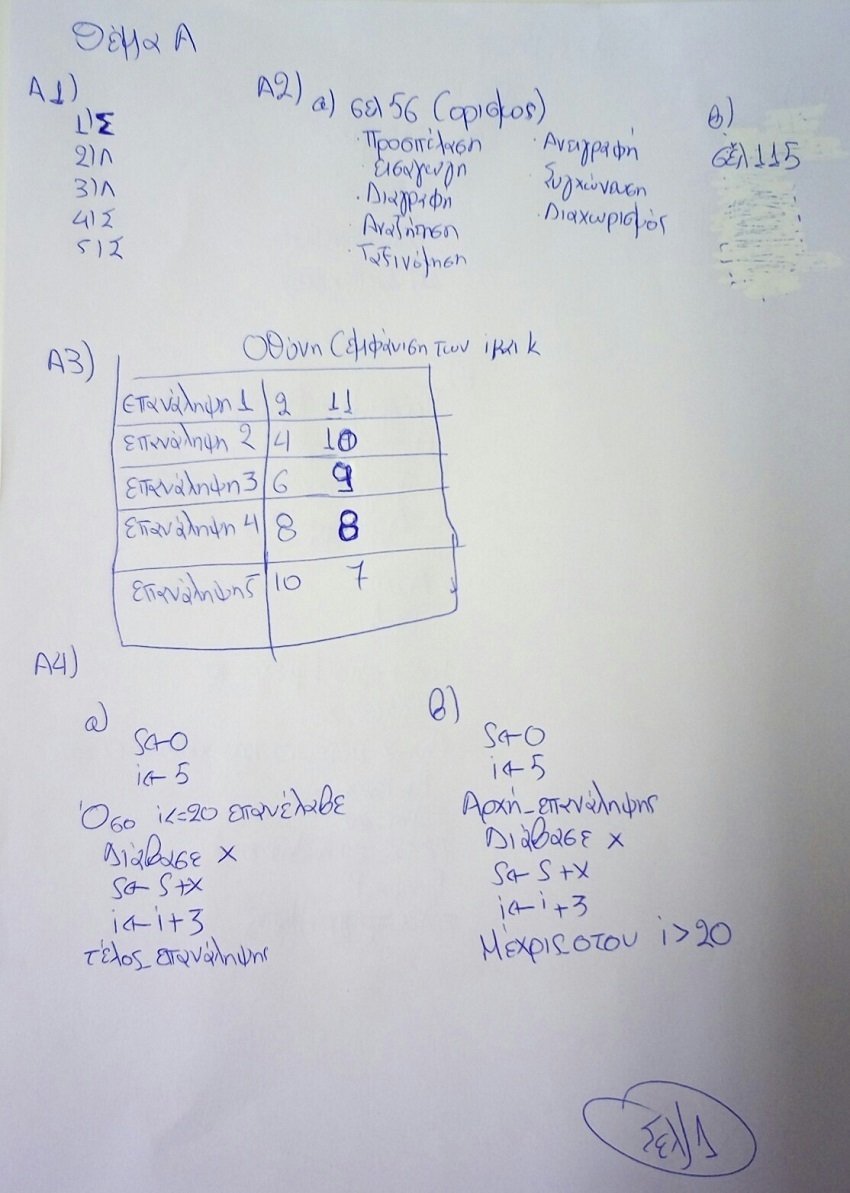 Θέμα Α
Α1)
1) Σ
2) Λ
3) Λ
4) Σ
5) Σ
Α2) α) σελ 56 (ορισμος)
· Προσπέλαση
· Εισαγωγη
· Διαγραφη
· Αναζήτηση
· Ταξινόμηση
· Αντιγραφή
· Συγχώνευση
· Διαχωρισμός
β)
σελ 115
Α3)
Οθόνη (εμφάνιση των i και k
επανάληψη 1 2 11
επανάληψη 2 4 10
επανάληψη 3 6 9
επανάληψη 4 8 8
επανάληψη 5 10 7
Α4)
α)
S←0
i←5
Όσο i<=20 επανέλαβε
Διάβασε x
S← S+x
i←i+3
τέλος_επανάληψης
β)
S←0
i←5
Αρχή_επανάληψης
Διάβασε x
S← S+x
i←i+3
Μέχρις_οτου i>20
Σελ/1